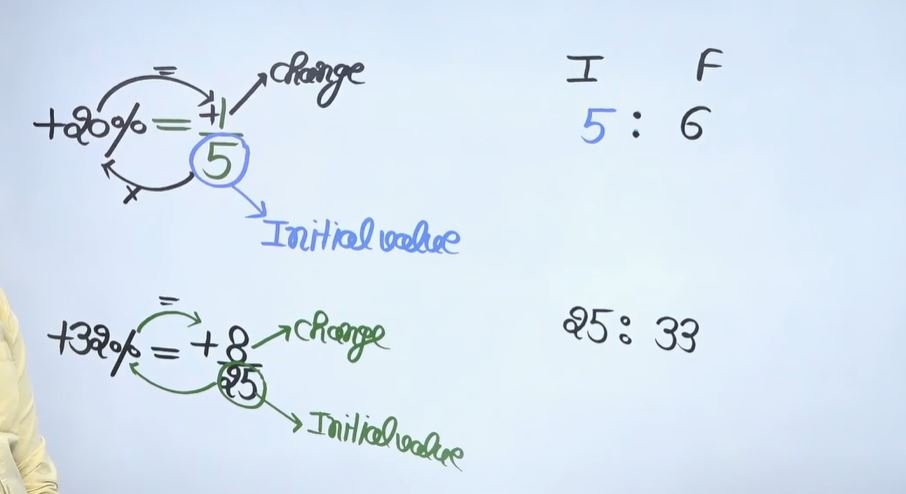 +20% = +1/5
=
×
change
Initial value
I F
5 : 6
+32% = +8/25
=
change
Initial value
25 : 33